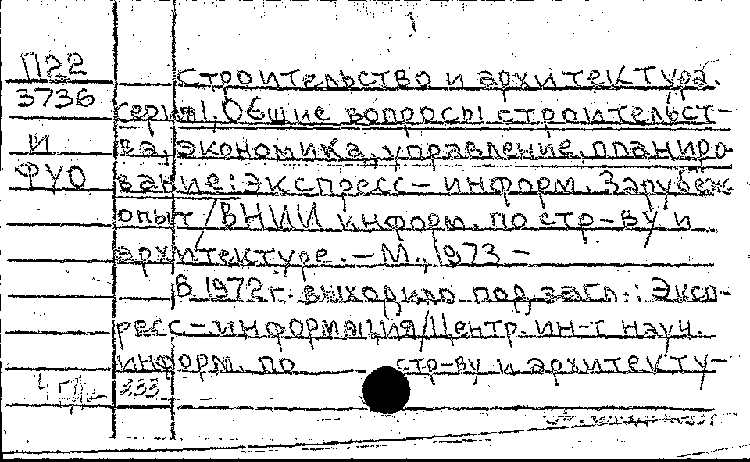 П22
3736
И
ФУО
Строительство и архитектура.
Серия1, Общие вопросы строительст-
ва, экономика, управление, планиро
вание: экспресс-информ. Зарубеж
опыт/ВНИИ информ. по стр-ву и
архитектуре. - М., 1973 -
В 1972г. выходило под загл.: Эксп-
ресс-информация/Центр. ин-т науч.
информ. по стр-ву и архитекту-
333